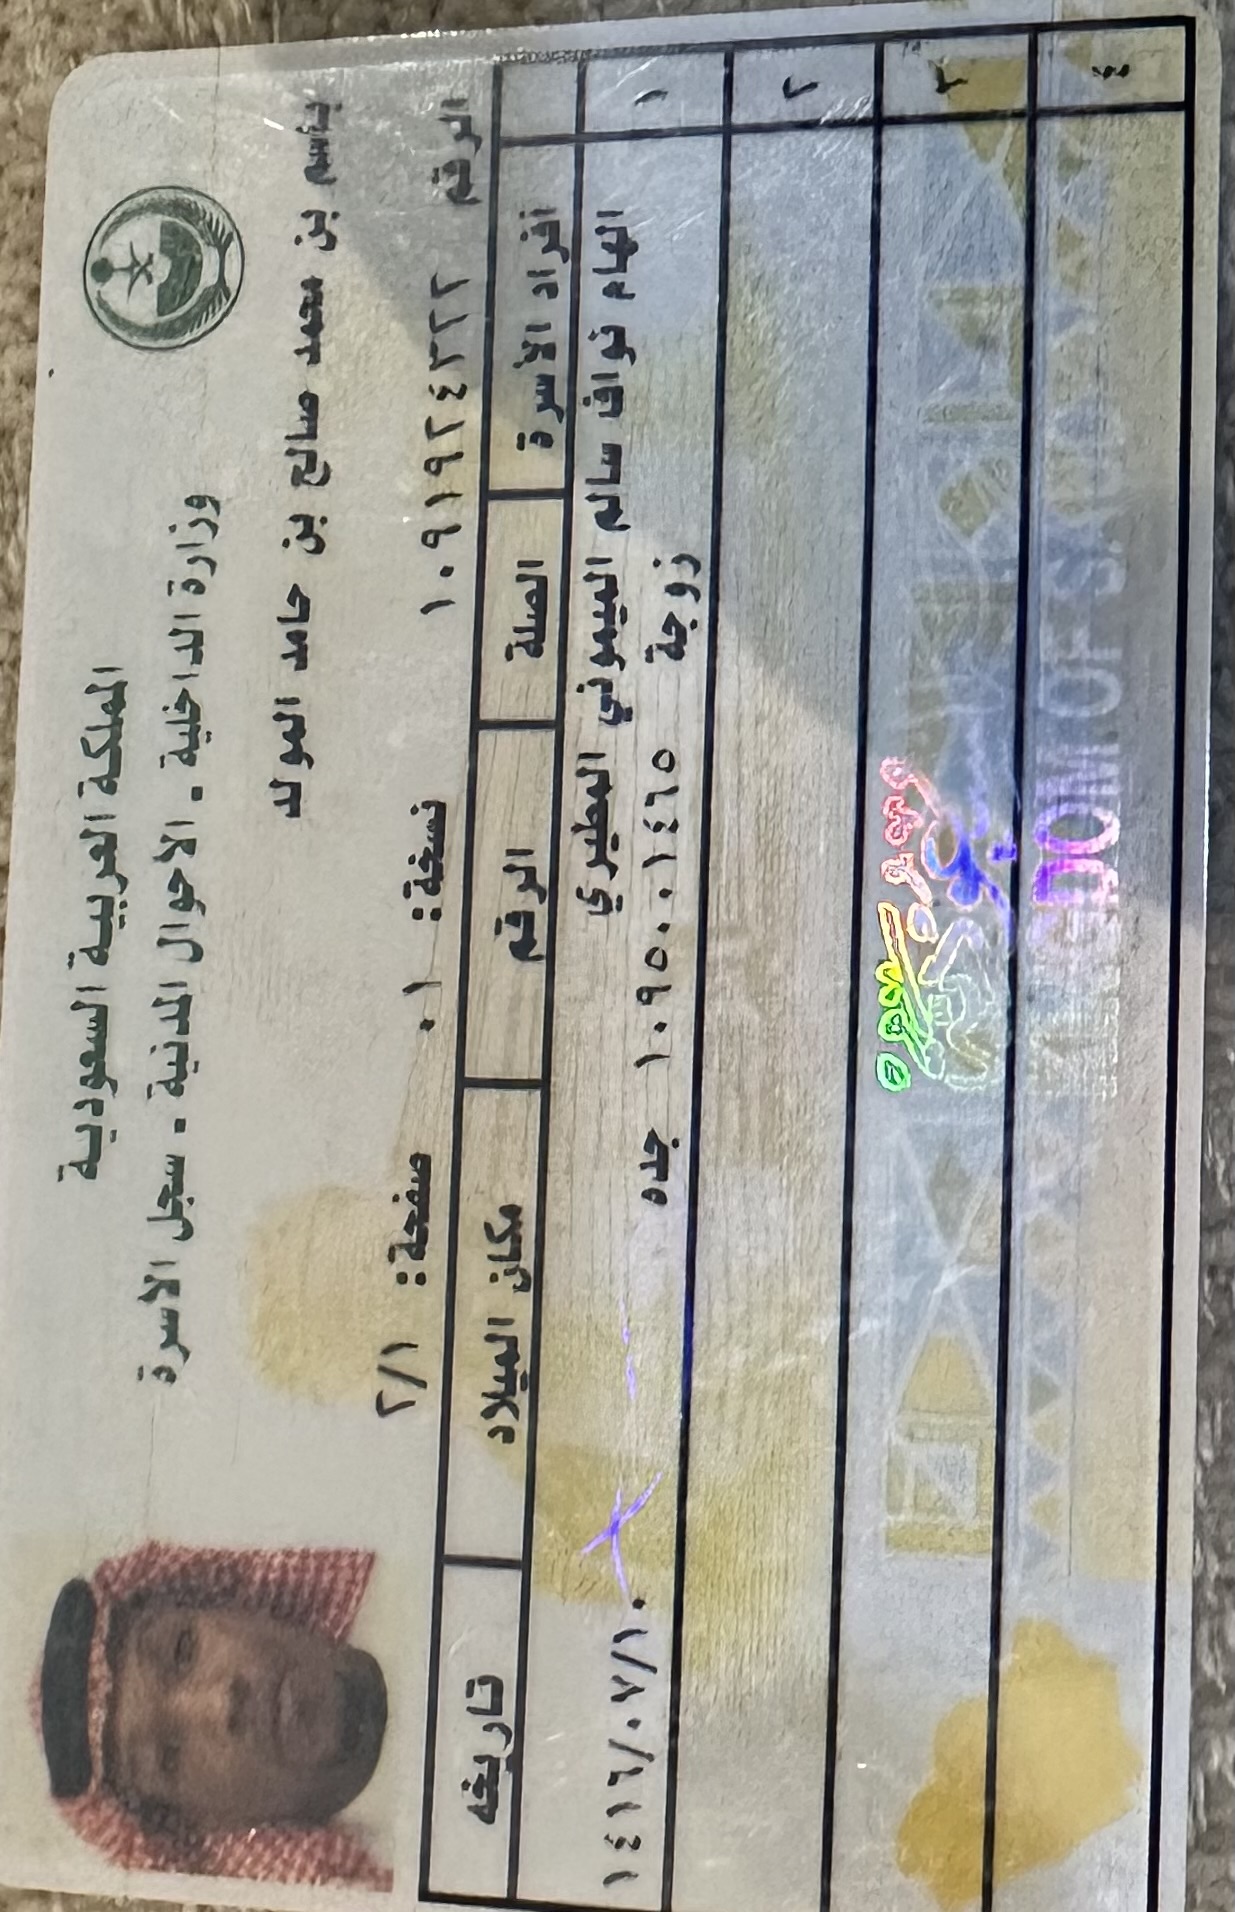 المملكة العربية السعودية
وزارة الداخلية - الاحوال المدنية - سجل الاسرة
باسم بن محمد صالح بن حامد المولد
الرقم ١٠٩١٩٢٤٣٢٢ نسخة: ٠١ صفحة: ٢/١
افراد الأسرة الصلة الرقم مكان الميلاد تاريخه
١ الهام نواف سالم الميموني المطيري
زوجة ١٠٩٥٠٠١٤٦٥ جده ١٤١٦/٠٧/١٠
٢
٣
٤
KINGDOM OF SAUDI